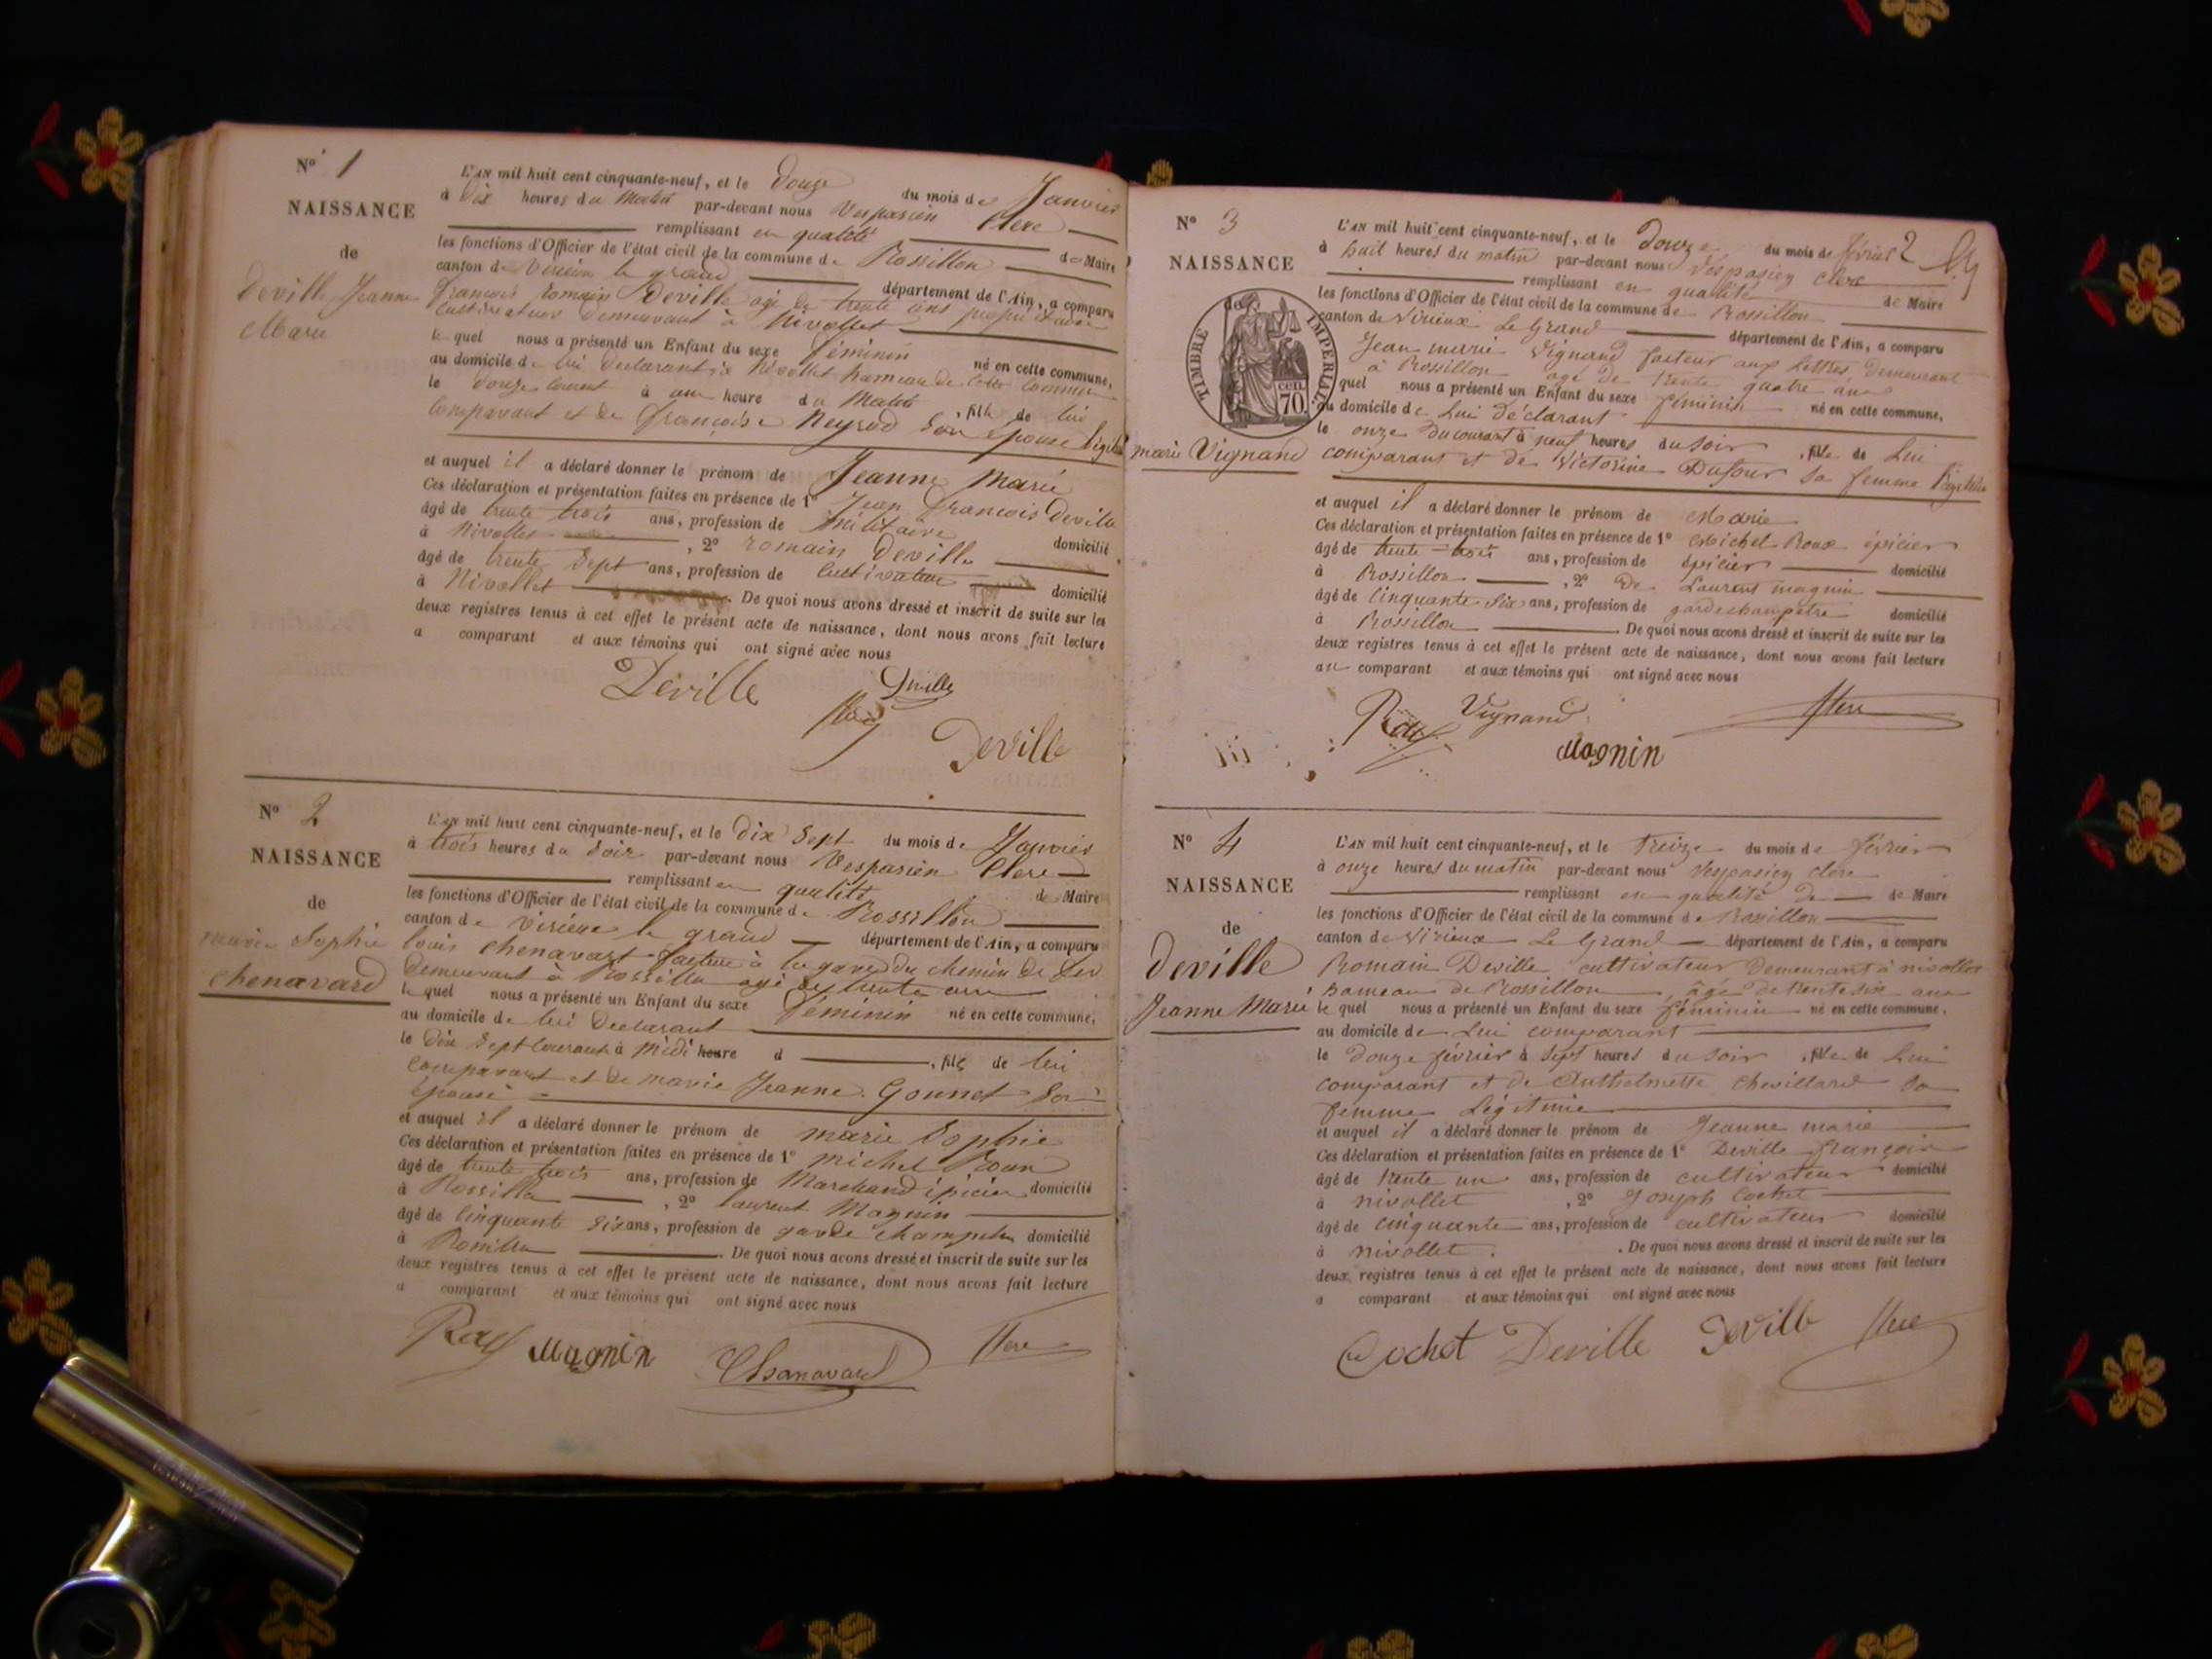 N° 1
NAISSANCE
de
Deville Jeanne
Marie
L'AN mil huit cent cinquante-neuf, et le Douze du mois de Janvier
à Dix heures du Matin par-devant nous Vespasien Clerc
remplissant en qualité de Maire
les fonctions d'Officier de l'état civil de la commune de Rossillon
canton de Virieu le grand département de l'Ain, a comparu
François Romain Deville agé de trente ans propriétaire
cultivateur demeurant à Nivollet
le quel nous a présenté un Enfant du sexe féminin né en cette commune,
au domicile de lui déclarant à Nivollet hameau de cette commune
le douze courant à une heure du Matin, fille de lui
comparant et de françoise Neyrod son épouse
et auquel il a déclaré donner le prénom de Jeanne Marie
Ces déclaration et présentation faites en présence de 1° Jean François Deville
âgé de trente trois ans, profession de Militaire domicilié
à Nivollet, 2° romain Deville
âgé de trente Sept ans, profession de Cultivateur domicilié
à Nivollet. De quoi nous avons dressé et inscrit de suite sur les
deux registres tenus à cet effet le présent acte de naissance, dont nous avons fait lecture
a comparant et aux témoins qui ont signé avec nous
Deville Deville
Deville
N° 2
NAISSANCE
de
marie Sophie
chenavard
L'AN mil huit cent cinquante-neuf, et le Dix Sept du mois de Janvier
à trois heures du Soir par-devant nous Vespasien Clerc
remplissant en qualité de Maire
les fonctions d'Officier de l'état civil de la commune de Rossillon
canton de Virieu le grand département de l'Ain, a comparu
louis chenavart facteur à la gare du chemin de fer
Demeurant à Rossillon agé de trente ans
le quel nous a présenté un Enfant du sexe féminin né en cette commune,
au domicile de lui Déclarant
le Dix Sept Courant à Midi heure d, fille de lui
Comparant et de marie Jeanne Gonnet Son
épouse
et auquel il a déclaré donner le prénom de marie Sophie
Ces déclaration et présentation faites en présence de 1° michel Roux
âgé de trente trois ans, profession de Marchand épicier domicilié
à Rossillon, 2° laurent Magnin
âgé de Cinquante Six ans, profession de garde champetre domicilié
à Rossillon. De quoi nous avons dressé et inscrit de suite sur les
deux registres tenus à cet effet le présent acte de naissance, dont nous avons fait lecture
a comparant et aux témoins qui ont signé avec nous
Magnin Chanavard Clerc
N° 3
NAISSANCE
de
TIMBRE IMPÉRIAL
70 cen.
marie Vignand
L'AN mil huit cent cinquante-neuf, et le Douze du mois de février 2
à huit heures du matin par-devant nous Vespasien Clerc
remplissant en qualité de Maire
les fonctions d'Officier de l'état civil de la commune de Rossillon
canton de Virieux Le Grand département de l'Ain, a comparu
Jean marie Vignand facteur aux Lettres demeurant
à Rossillon agé de trente quatre ans
quel nous a présenté un Enfant du sexe féminin né en cette commune,
au domicile de Lui déclarant
le onze du courant à neuf heures du Soir, fille de Lui
comparant et de Victorine Dufour Sa femme Légitime
et auquel il a déclaré donner le prénom de Marie
Ces déclaration et présentation faites en présence de 1° Michel Roux épicier
âgé de trente-trois ans, profession de épicier domicilié
à Rossillon, 2° de Laurent magnin
âgé de Cinquante Six ans, profession de garde champetre domicilié
à Rossillon. De quoi nous avons dressé et inscrit de suite sur les
deux registres tenus à cet effet le présent acte de naissance, dont nous avons fait lecture
au comparant et aux témoins qui ont signé avec nous
Vignand Clerc
Magnin
N° 4
NAISSANCE
de
Deville
Jeanne Marie
L'AN mil huit cent cinquante-neuf, et le Treize du mois de février
à onze heures du matin par-devant nous Vespasien Clerc
remplissant en qualité de de Maire
les fonctions d'Officier de l'état civil de la commune de Rossillon
canton de Virieux Le Grand département de l'Ain, a comparu
Romain Deville cultivateur Demeurant à nivollet
hameau de Rossillon, âgé de trente six ans
le quel nous a présenté un Enfant du sexe féminin né en cette commune,
au domicile de Lui comparant
le Douze février à Sept heures du Soir, fille de Lui
comparant et de Anthelmette Chevillard Sa
femme Légitime
et auquel il a déclaré donner le prénom de Jeanne marie
Ces déclaration et présentation faites en présence de 1° Deville françois
âgé de trente un ans, profession de cultivateur domicilié
à nivollet, 2° Joseph Cochet
âgé de cinquante ans, profession de cultivateur domicilié
à nivollet. De quoi nous avons dressé et inscrit de suite sur les
deux registres tenus à cet effet le présent acte de naissance, dont nous avons fait lecture
a comparant et aux témoins qui ont signé avec nous
Cochet Deville Deville Clerc